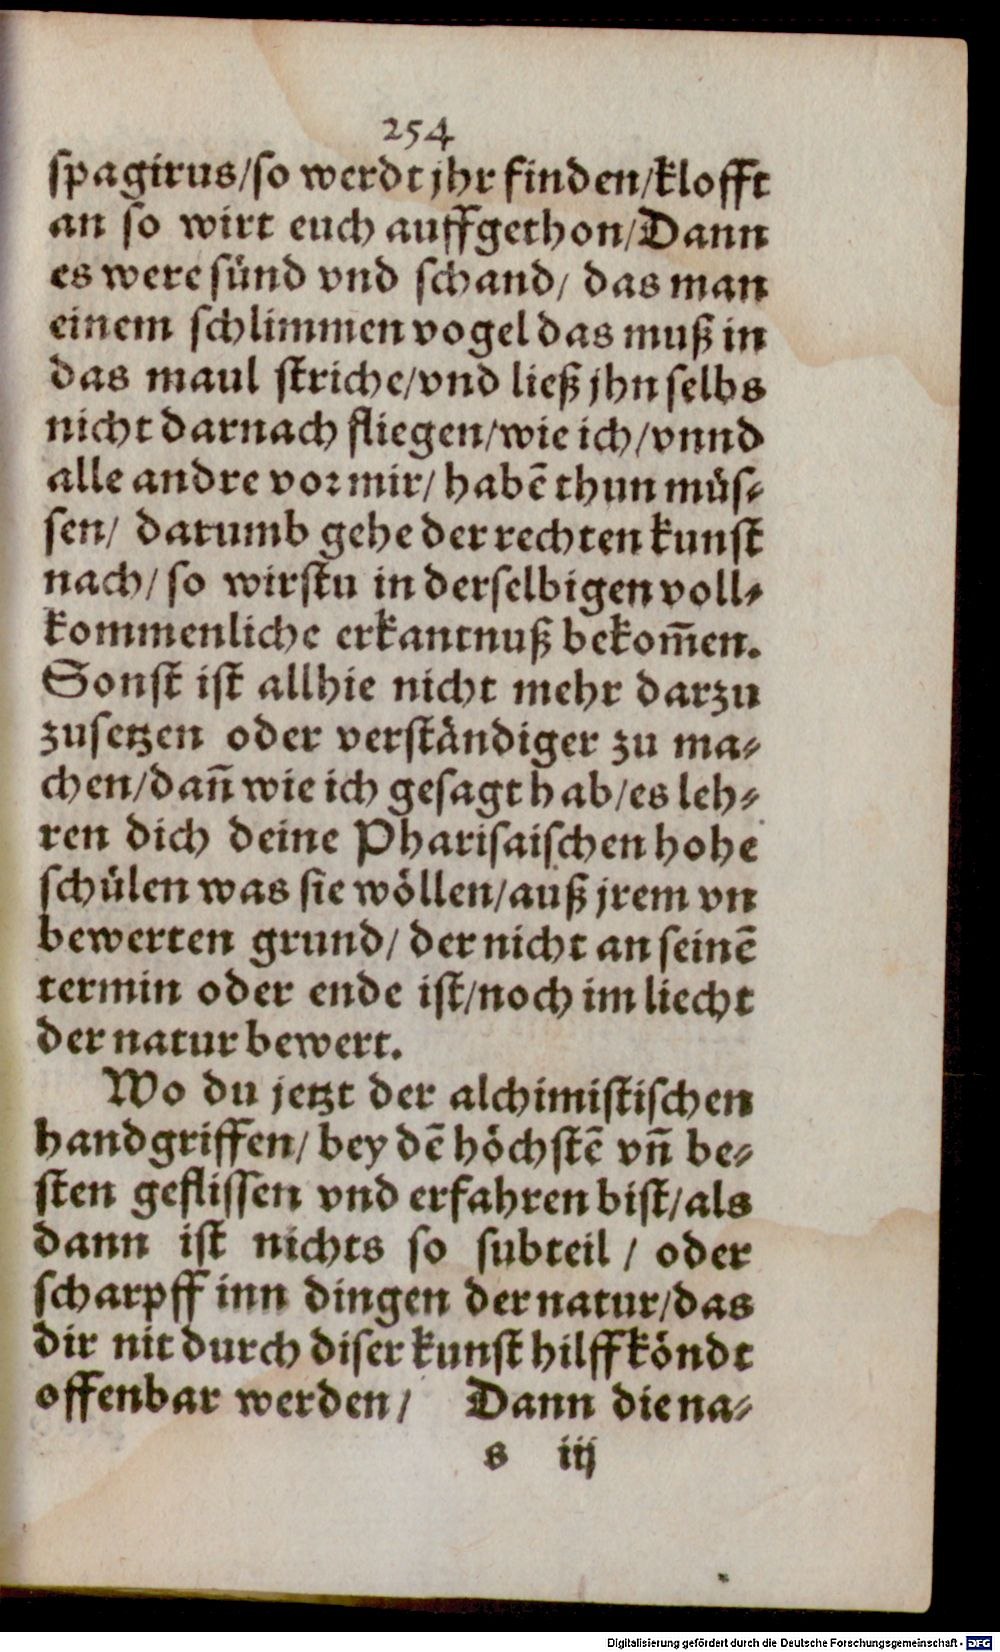 254
spagirus/so werdt jhr finden/klofft
an so wirt euch auffgethon/Dann
es were sünd vnd schand/ das man
einem schlimmen vogel das muß in
das maul striche/vnd ließ jhn selbs
nicht darnach fliegen/wie ich/vnnd
alle andre vor mir/ habē thun müs-
sen/ darumb gehe der rechten kunst
nach/ so wirstu in derselbigen voll-
kommenliche erkantnuß bekom̄en.
Sonst ist allhie nicht mehr darzu
zusetzen oder verständiger zu ma-
chen/dan̄ wie ich gesagt hab/es leh-
ren dich deine Pharisaischen hohe
schülen was sie wöllen/auß jrem vn
bewerten grund/ der nicht an seinē
termin oder ende ist/noch im liecht
der natur bewert.
Wo du jetzt der alchimistischen
handgriffen/ bey dē höchstē vn̄ be-
sten geflissen vnd erfahren bist/als
dann ist nichts so subteil / oder
scharpff inn dingen der natur/das
dir nit durch diser kunst hilff köndt
offenbar werden/ Dann die na-
s iij
Digitalisierung gefördert durch die Deutsche Forschungsgemeinschaft - DFG